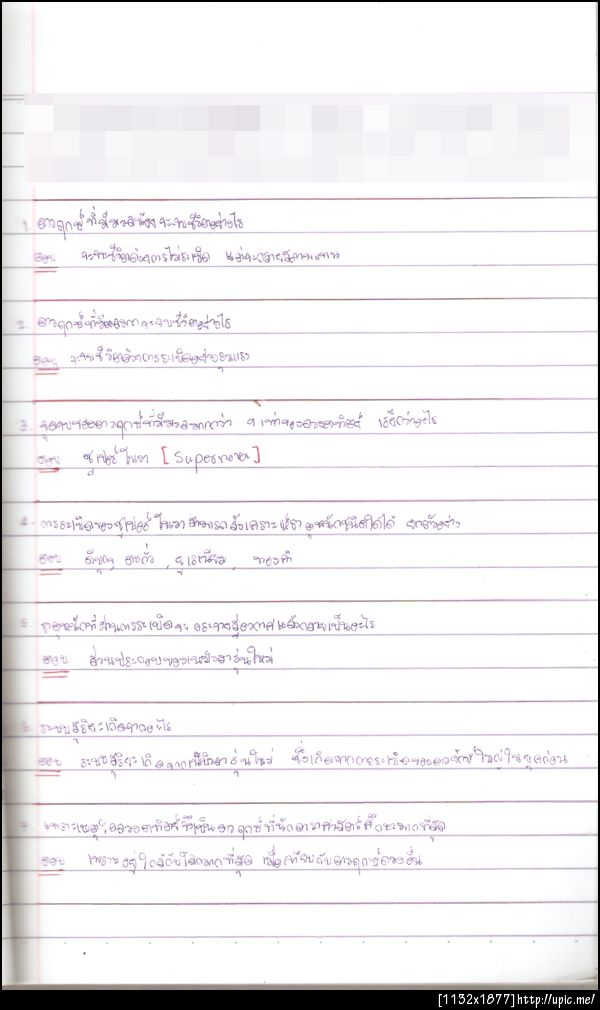 1. ดาวฤกษ์ที่มีมวลน้อยจะจบชีวิตอย่างไร
ตอบ จะจบชีวิตด้วยการไม่ระเบิด แต่จะกลายเป็นดาวแคระ
2. ดาวฤกษ์ที่มีมวลมากจะจบชีวิตอย่างไร
ตอบ จะจบชีวิตด้วยการระเบิดอย่างรุนแรง
3. จุดจบของดาวฤกษ์ที่มีมวลมากกว่า 9 เท่าของดวงอาทิตย์ เรียกว่าอะไร
ตอบ ซูเปอร์โนวา [Supernova]
4. การระเบิดของซูเปอร์โนวาสามารถสังเคราะห์ธาตุหนักชนิดใดได้ ยกตัวอย่าง
ตอบ ดีบุก, ตะกั่ว, ยูเรเนียม, ทองคำ
5. ธาตุหนักที่ผ่านการระเบิดจะกระจายสู่อวกาศแล้วกลายเป็นอะไร
ตอบ ส่วนประกอบของเนบิวลารุ่นใหม่
6. ระบบสุริยะเกิดจากอะไร
ตอบ ระบบสุริยะเกิดจากเนบิวลารุ่นใหม่ ซึ่งเกิดจากการระเบิดของดาวฤกษ์ใหญ่ในยุคก่อน
7. เพราะเหตุใดดวงอาทิตย์จึงเป็นดาวฤกษ์ที่นักดาราศาสตร์ศึกษามากที่สุด
ตอบ เพราะอยู่ใกล้กับโลกมากที่สุด เมื่อเทียบกับดาวฤกษ์ดวงอื่น
[1132x1877]http://upic.me/